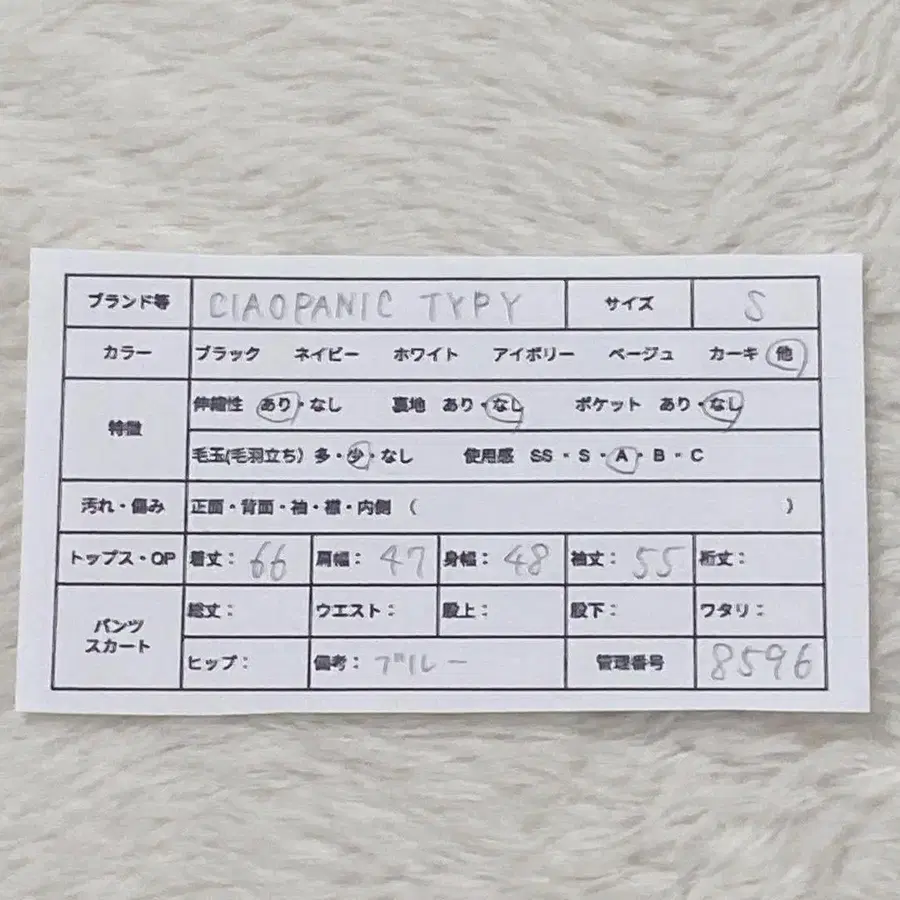 ブランド等 CIAOPANIC TYPY サイズ S
カラー ブラック ネイビー ホワイト アイボリー ベージュ カーキ 他
特徴 伸縮性 あり・なし 裏地 あり・なし ポケット あり・なし
毛玉(毛羽立ち) 多・少・なし 使用感 SS・S・A・B・C
汚れ・傷み 正面・背面・袖・襟・内側 ( )
トップス・OP 着丈: 66 肩幅: 47 身幅: 48 袖丈: 55 裄丈:
パンツ スカート 総丈: ウエスト: 股上: 股下: ワタリ:
ヒップ: 備考: ブルー 管理番号 8596